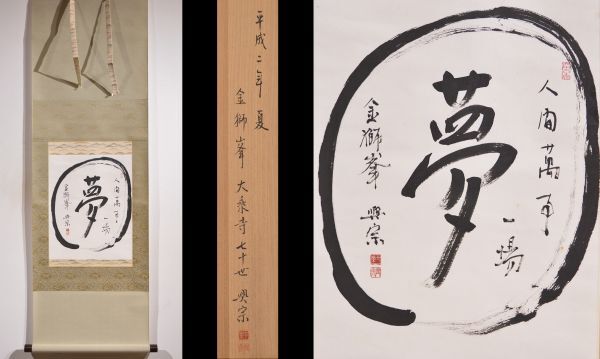 人間萬事
一場
夢
金獅峯
興宗
平成二年 夏
金獅峯 大乗寺七十世 興宗
人間萬事
一場
夢
金獅峯
興宗